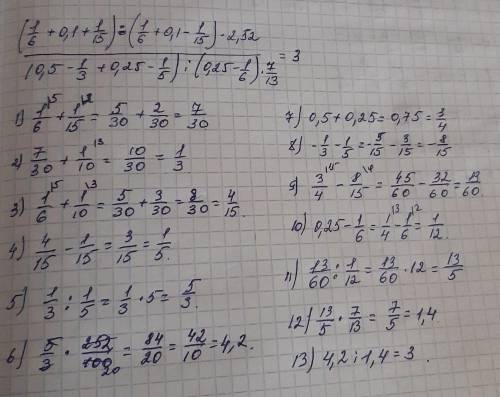 (1/6 + 0,1 + 1/15) : (1/6 + 0,1 - 1/15) · 2,52
(0,5 - 1/3 + 0,25 - 1/5) : (0,25 - 1/6) · 7/13 = 3
1) 1/6 \5 + 1/15 \2 = 5/30 + 2/30 = 7/30
2) 7/30 + 1/10 \3 = 10/30 = 1/3
3) 1/6 \5 + 1/10 \3 = 5/30 + 3/30 = 8/30 = 4/15.
4) 4/15 - 1/15 = 3/15 = 1/5.
5) 1/3 : 1/5 = 1/3 · 5 = 5/3.
6) 5/3 · 252/100 20 = 84/20 = 42/10 = 4,2.
7) 0,5 + 0,25 = 0,75 = 3/4
8) - 1/3 - 1/5 = - 5/15 - 3/15 = - 8/15
9) 3/4 \15 - 8/15 \4 = 45/60 - 32/60 = 13/60
10) 0,25 - 1/6 = 1/4 \3 - 1/6 \2 = 1/12.
11) 13/60 : 1/12 = 13/60 · 12 = 13/5
12) 13/5 · 7/13 = 7/5 = 1,4
13) 4,2 : 1,4 = 3.